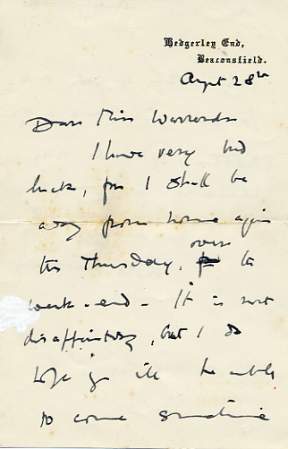 Hedgerley End,
Beaconsfield.
Augt 28th
Dear Miss
I have very bad
luck, for I shall be
away from home again
this Thursday, over the
week-end - It is most
disappointing, but I do
hope
to come sometime